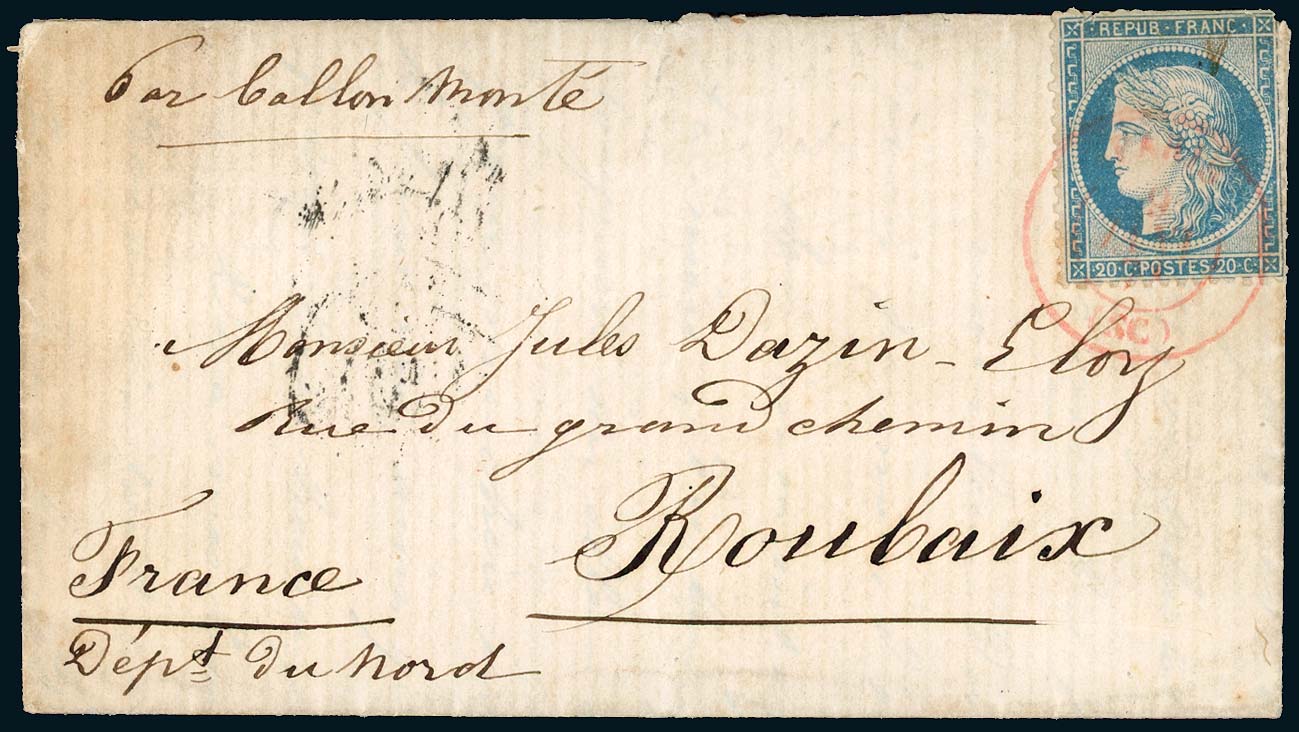 Par ballon monté
REPUB·FRANC
20·C·POSTES·20·C
(SC)
Monsieur Jules Dazin-Eloy
Rue du grand chemin
Roubaix
France
Dépt du Nord